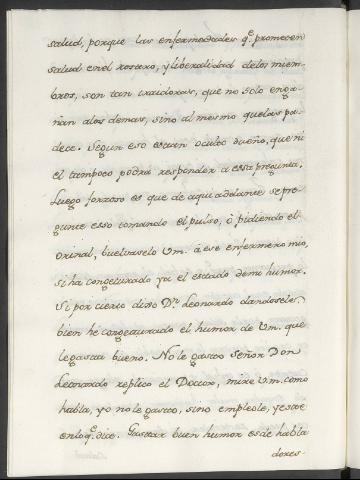 salud, porque las enfermedades q.e promeeen
salud en el rostro, y liberalidad de los miem-
bros, son tan traidoras, que no solo enga-
ñan alos demas, sino al mesmo que las pa-
dece. Segun eso estan oculto dueño, que ni
el tampoco podrá responder a essa pregunta.
Luego forzoso es que de aqui adelante se pre-
gunte esso tomando el pulso, ò pidiendo el
orinal, buelvaselo Vm. á ese enfermero mio,
si ha congeturado ya el estado de mi humor.
Si por cierto dixo D.n Leonardo dandosele,
bien hé congeturado el humor de Vm. que
le gasta bueno. No le gasto Señor Don
Leonardo replico el Doctor, mire Vm. como
habla, yo no le gasto, sino empleole, y estoe
en lo q.e dice. Gastar buen humor es de habla
dores-